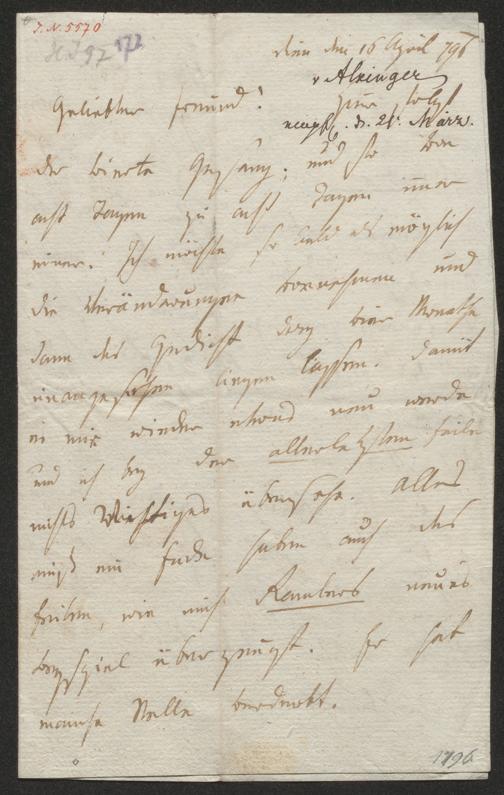 I.N. 5570
H.I 97 172
Wien den 16 April 796
v Alxinger
Geliebter Freund! Hier folgt
empf. d. 21. März.
der vierte Gesang; und so von
acht Tagen zu acht Tagen immer
einer. Ich möchte so bald als möglich
die Veränderungen vornehmen und
dann das Gedicht drey vier Monathe
unangesehen liegen lassen. damit
es mir wieder etwas neu werde
und ich bey der allerletzten Feile
nichts Wichtiges übersehe. Alles
muß ein Ende haben auch das
Feilen, wie mich Ramlers neues
Beyspiel überzeugt. Er hat
manche Stelle verderbt.
1796